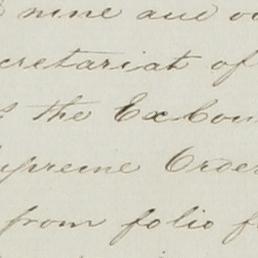 nine and
cretariat of
the Ex Coun
upreme Order
from folio f